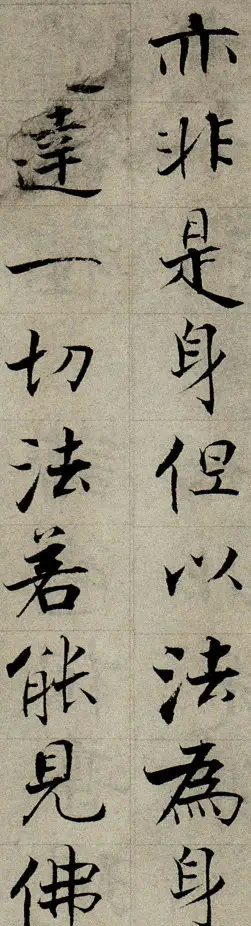 亦非是身但以法為身
達一切法若能見佛